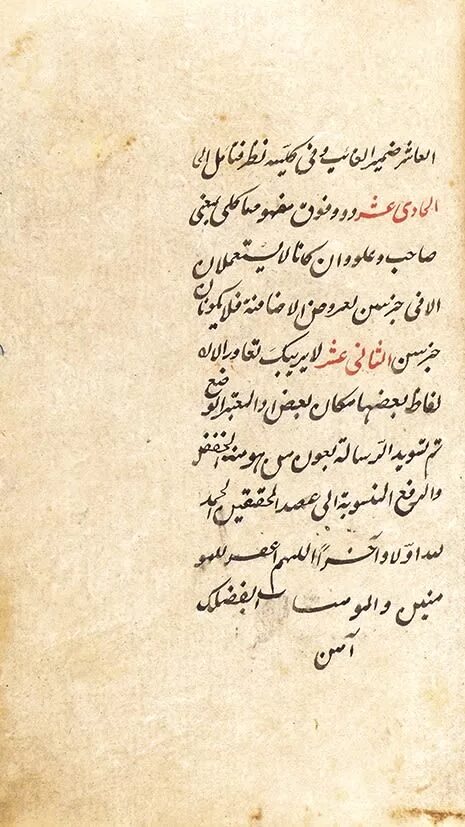 العاشر ضمير الغائب وفى كليته نظر فتامل الى
الحادى عشر ذو وفوق مفهومهما كلى بمعنى
صاحب وعلو وان كانا لا يستعملان
الا فى جزئين لعروض الاضافة فلا يكونان
جزئين الثانى عشر لا يريبك تعاور الال
لفاظ بعضها مكان بعض اذ المعتبر الوضع
تم تسويد الرسالة بعون من هو منه الخفض
والرفع المنسوبة الى عضد المحققين الحمد
لله اولا وآخرا اللهم اغفر للمو
منين والمومنات بفضلك
آمين